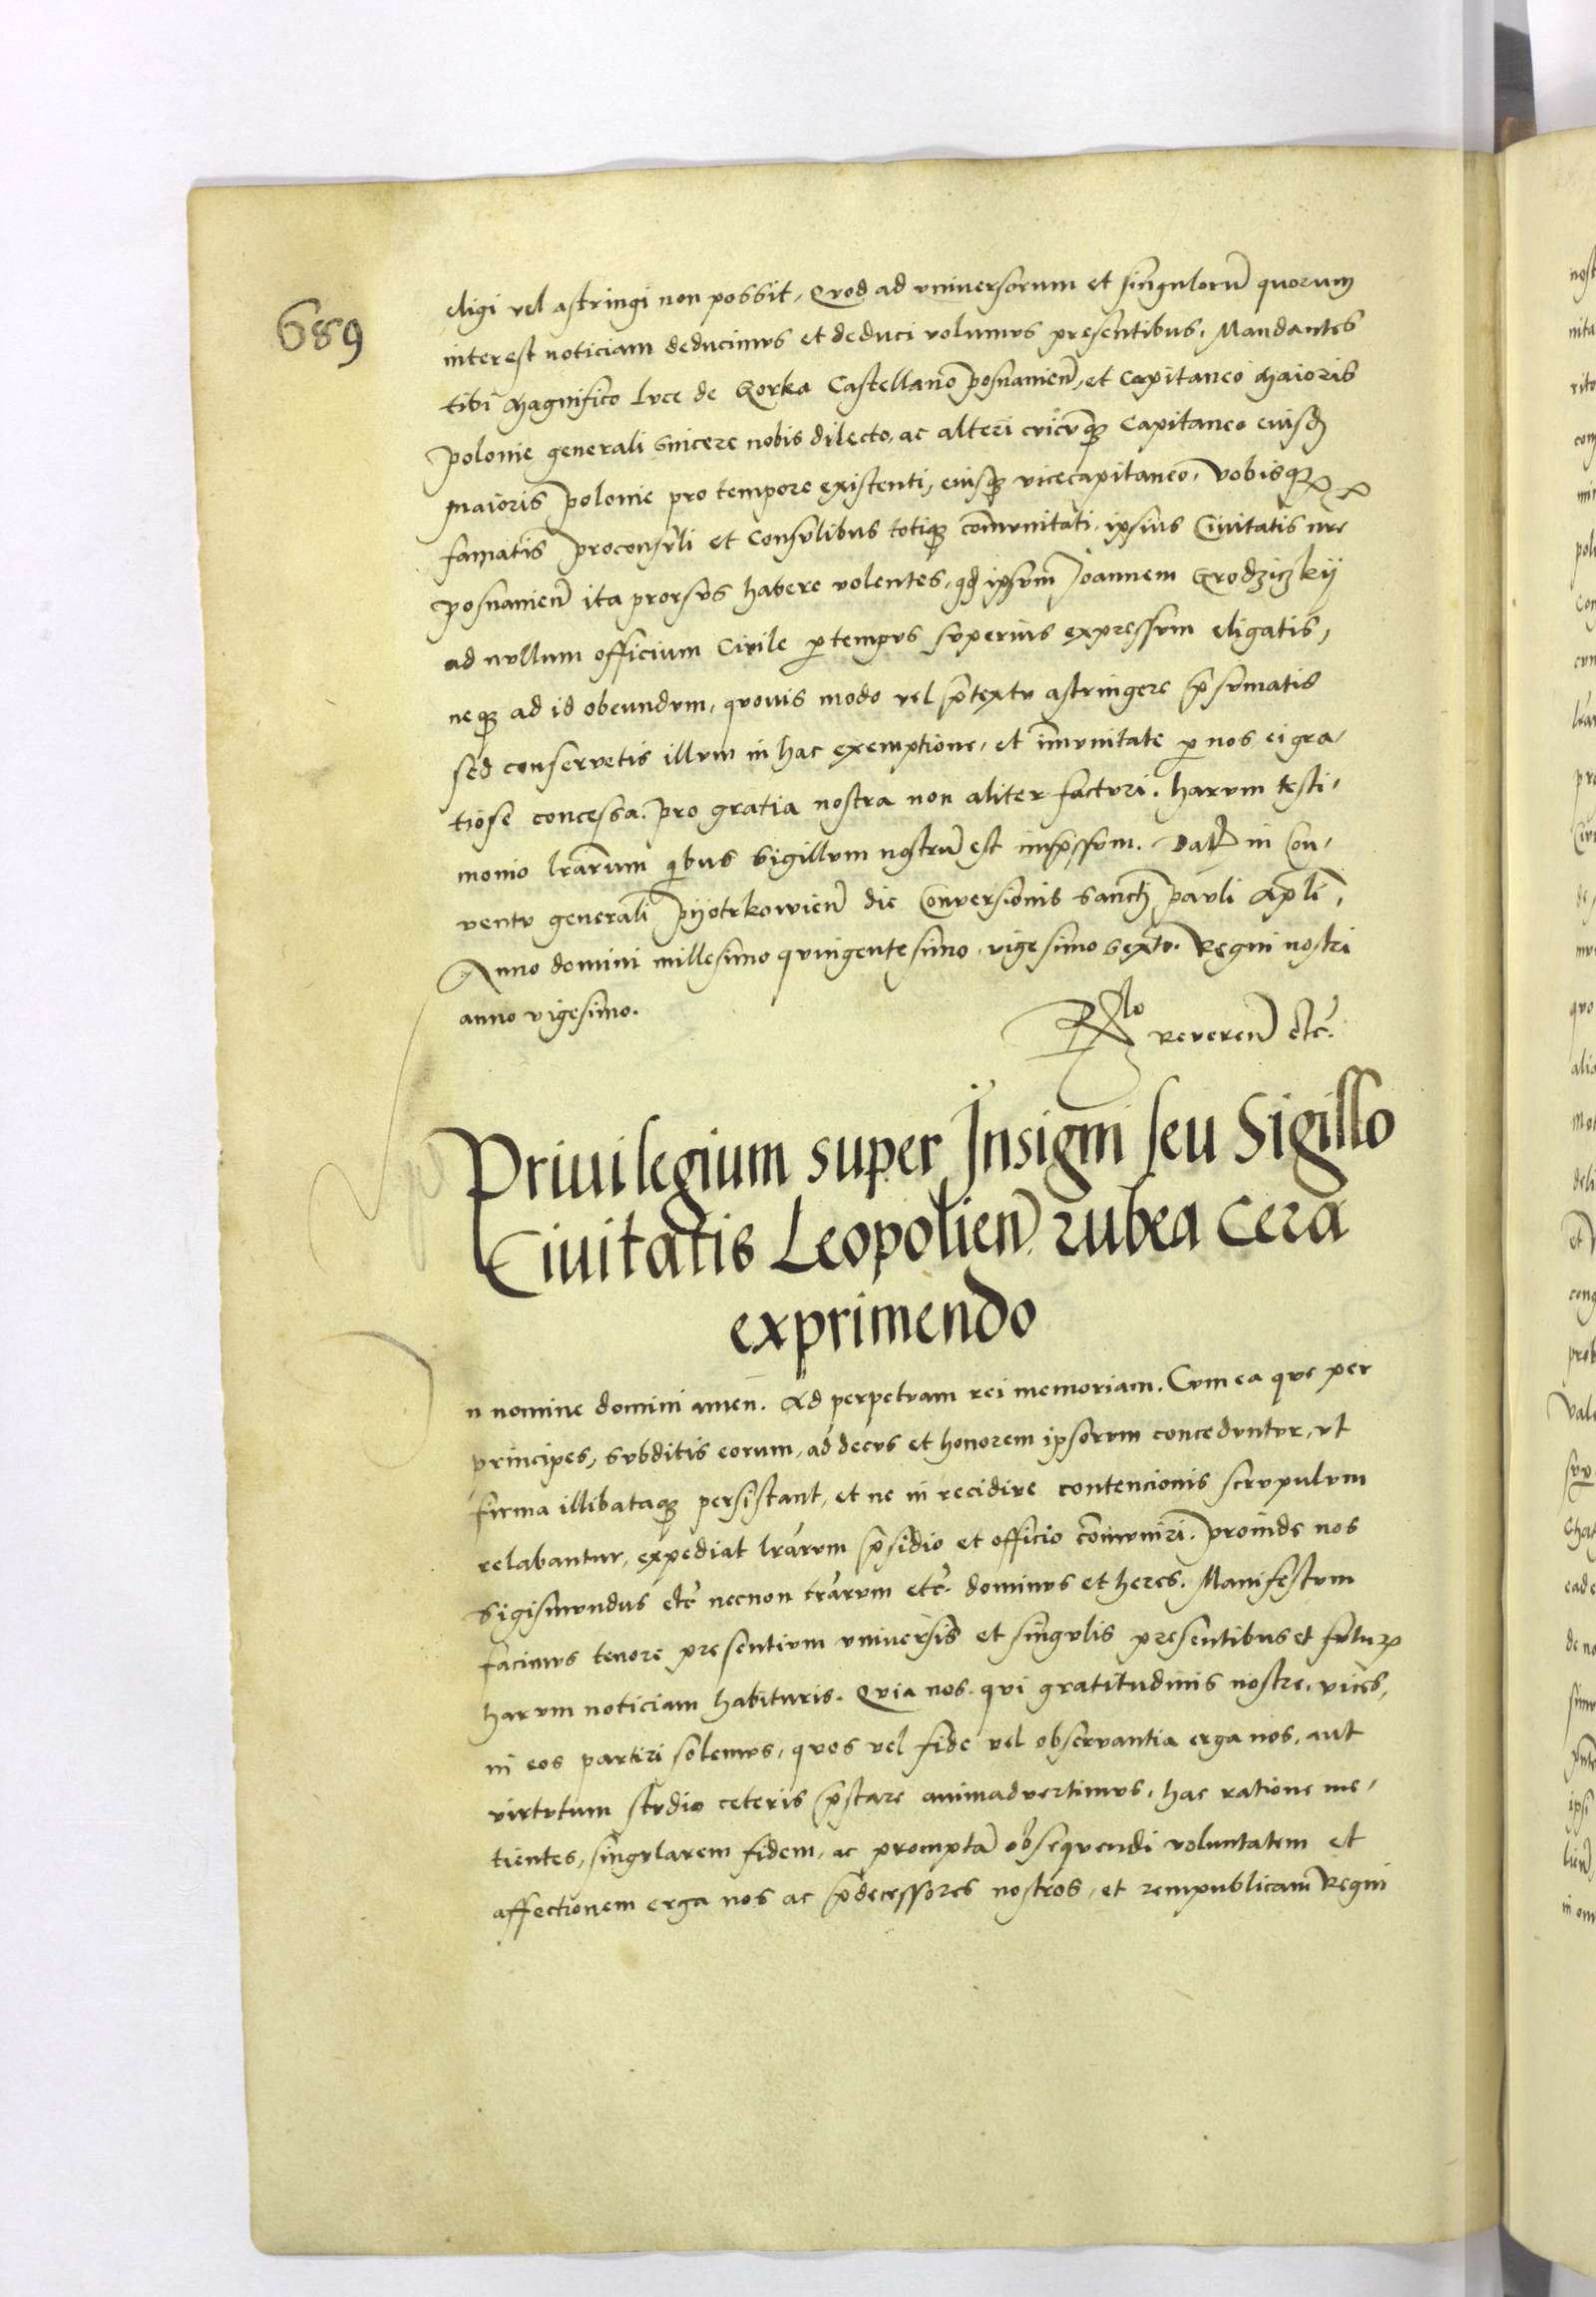 689
eligi vel astringi non possit, Quod ad vniuersorum et singulorū quorum
interest noticiam deducimus et deduci volumus presentibus. Mandantes
tibi Magnifico Luce de Gorka Castellano posnanieñ, et Capitaneo Maioris
polonie generali sincere nobis dilecto, ac alteri cuicūq̄ Capitaneo eiusđ
Maioris polonie pro tempore existenti, eiusq̄ vicecapitaneo, Vobisq̄
famatis proconsuli et Consulibus totiq̄ com̄unitati ipsius Ciuitatis nr̄e
posnanieñ ita prorsus habere volentes, qđ ipsum Joannem Grodziczkij
ad nullum officium Ciuile p tempus superius expressum eligatis,
neq̄ ad id obeundum, quouis modo vel p̄textu astringere p̄sumatis
sed conseruetis illum in hac exemptione, et im̄unitate p nos ei gra,
tiose concessa. pro gratia nostra non aliter facturi. harum testi,
monio lr̄arum qibus Sigillum nostrū est imp̄ssum. Dat in Con,
uentu generali pijotrkowieñ die Conuersionis Sancti pauli Apl̄i,
Anno domini millesimo quingentesimo vigesimo sexto. Regni nostri
anno vigesimo.
Rlo Reuereñ etc̄.
Priuilegium super Insigni seu Sigillo
Ciuitatis Leopolieñ rubea Cera
exprimendo
n nomine domini amen. Ad perpetuam rei memoriam. Cum ea que per
principes, subditis eorum, ad decus et honorem ipsorum conceduntur, vt
firma illibataq̄ persistant, et ne in recidiue contencionis scrupulum
relabantur, expediat lr̄arum p̄sidio et officio com̄uniri. proinde nos
Sigismundus etc̄ necnon tr̄arum etc̄. dominus et heres. Manifestum
facimus tenore presentium vniuersis et singulis presentibus et futuꝝ
harum noticiam habituris. Quia nos qui gratitudinis nostre, vices,
in eos partiri solemus, quos vel fide vel obseruantia erga nos, aut
virtutum studio ceteris p̄stare animaduertimus, hac ratione me,
tientes, singularem fidem, ac promptā obsequendi voluntatem et
affectionem erga nos ac p̄decessores nostros, et rempublicam Regni